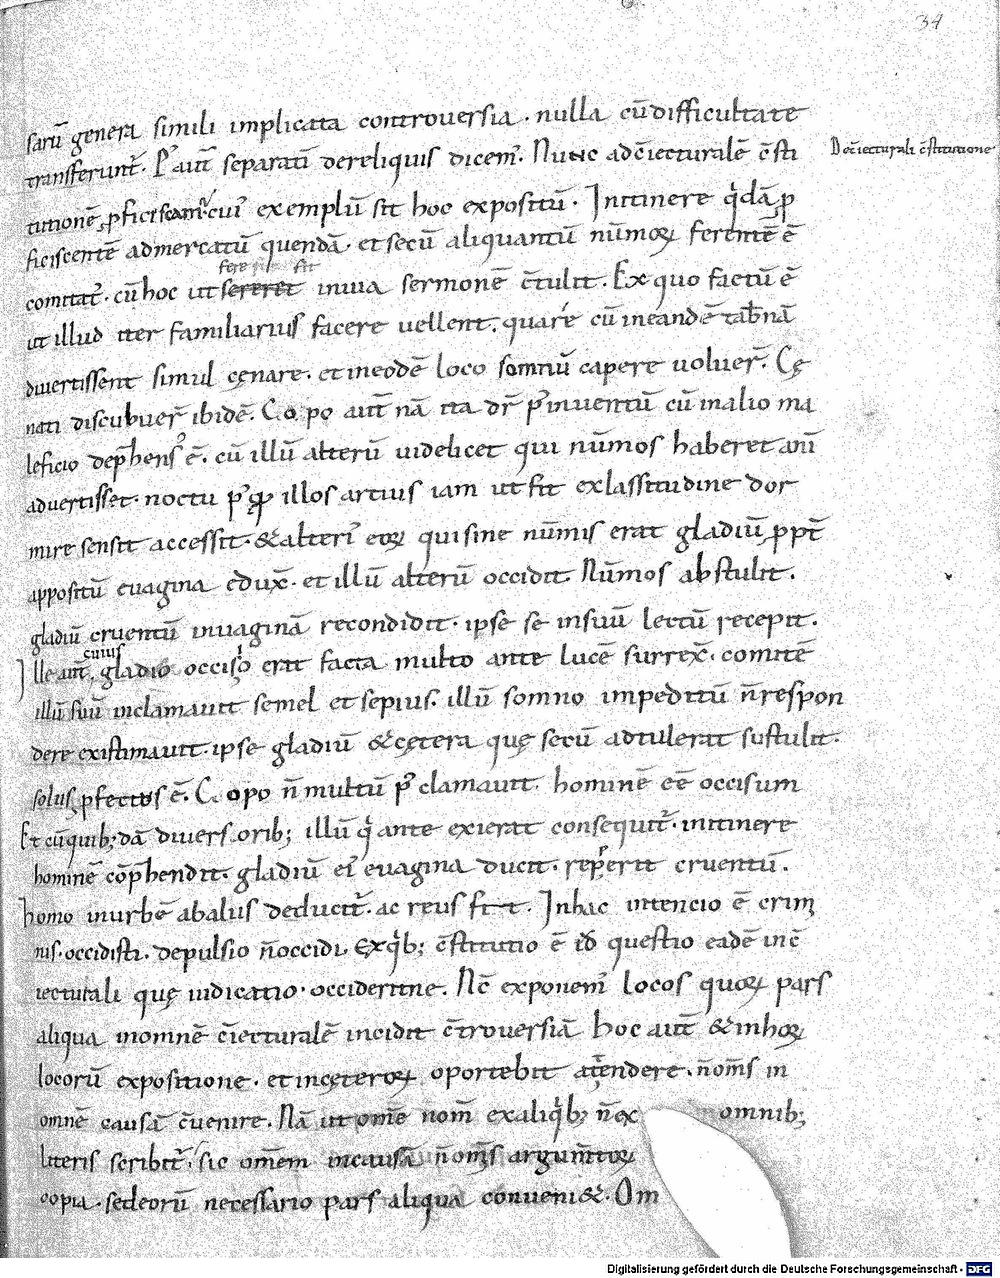 34
sarū genera simili implicata controuersia · nulla cū difficultate
transferunt̄. P᾽ aut̄ separati᾽ dereliquis dicem᾽. Nunc ad c̄iecturalē c̄sti
Dec̄iecturali c̄stitutione
tutionē ꝓficiscam᾽ cui᾽ exemplū sit hoc expositū. Initinere q̇dā ꝓ
ficiscentē admercatū quendā· et secū aliquantū nūmoꝝ ferentē ē
fere sit
comitat᾽. cū hoc ut sereret inuia sermonē c̄tulit. Ex quo factū ē
ut illud iter familiarius facere uellent. quare cū ineandē tab̄nā
diuertissent simul cęnare. et ineodē loco somnū capere uoluer̄. Cę
nati discubuer̄ ibidē. Co po aut̄ nā ita dr̄ p᾽inuentū cū inalio ma
leficio dep̄hens᾽ ē. cū illū alterū uidelicet qui nūmos haberet ani
aduertisset. noctu p᾽ꝗ illos artius iam ut fit exlassitudine dor
mire sensit accessit. & alteri᾽ eoꝝ qui sine nūmis erat gladiū ꝓpt̄
appositū euagina edux̄. et illū alterū occidit. Nūmos abstulit.
gladiū cruentū inuaginā recondidit. ipse se insuū lectū recepit.
cuius
Ille aut̄ gladio occisio erat facta multo ante lucē surrex̄. comitē
illū suū inclamauit semel et sepius. illū somno impeditū n̄respon
dere existimauit. ipse gladiū & cętera quę secū adtulerat sustulit.
solus ꝓfectus ē. Co opo n̄ multū p᾽ clamauit. hominē eē occisum
Et cū quib; dā diuersorib; illū q̇ ante exierat consequit᾽. initinere
hominē cōp̄hendit. gladiū ei᾽ euagina ducit. repperit cruentū.
homo inurbē abalus deducit᾽. ac reus fit. Inhac intencio ē crim
nis· occidisti. depulsio n̄occidi. Exq̇b; c̄stitutio ē id̄ questio eadē in c̄
iecturali quę iudicatio· occideritne. Nc̄ exponem᾽ locos quoꝝ pars
aliqua inomnē c̄iecturalē incidit c̄trouersiā hoc aut̄ & inhoꝝ
locorū expositione. et incęteroꝝ oportebit at̄tendere. n̄om̄s in
omnē causā c̄uenire. Nā ut om̄e nom̄ exaliq̇b; n̄ex omnib;
literis scribit᾽. sic om̄em incausā n̄om̄s argum̄toꝝ
copia. sed eorū necessario pars aliqua conueni&. Om
Digitalisierung gefördert durch die Deutsche Forschungsgemeinschaft - DFG